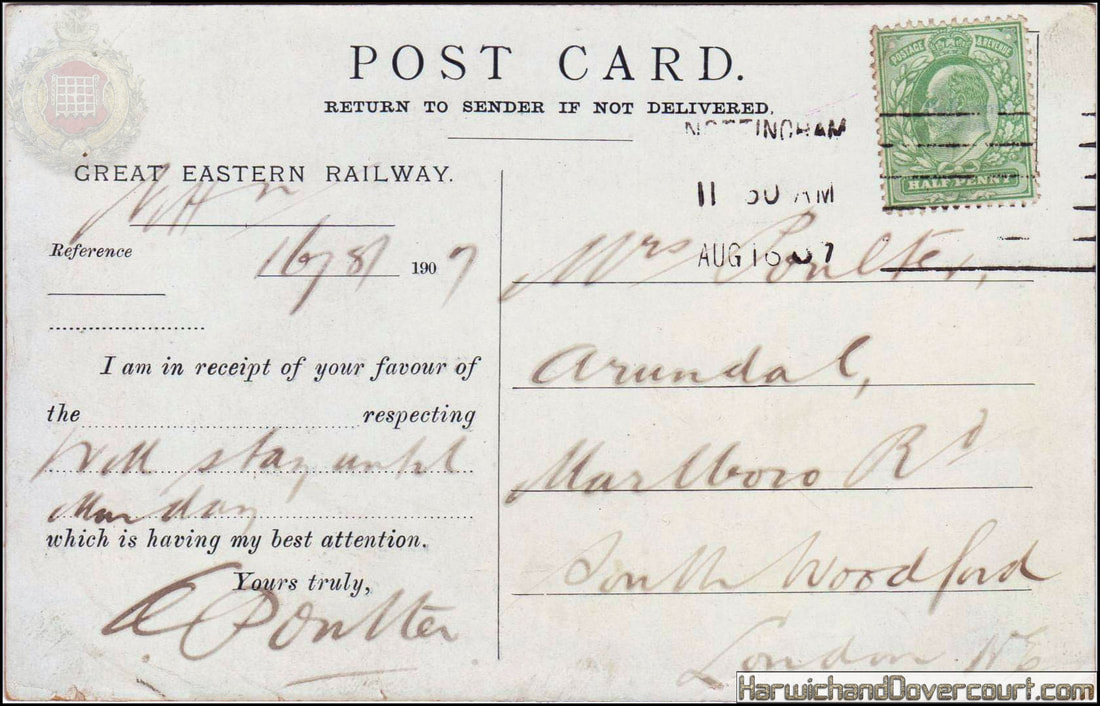 POST CARD.
RETURN TO SENDER IF NOT DELIVERED.
POSTAGE & REVENUE
HALF PENNY
NOTTINGHAM
11 30 AM
AUG 16 07
GREAT EASTERN RAILWAY.
Reference
16/8/ 1907
I am in receipt of your favour of
the respecting
Will stay until
Monday
which is having my best attention.
Yours truly,
Poulter
Mrs Poulter,
Arundal,
Marlboro Rd
South Woodford
London
HarwichandDovercourt.com